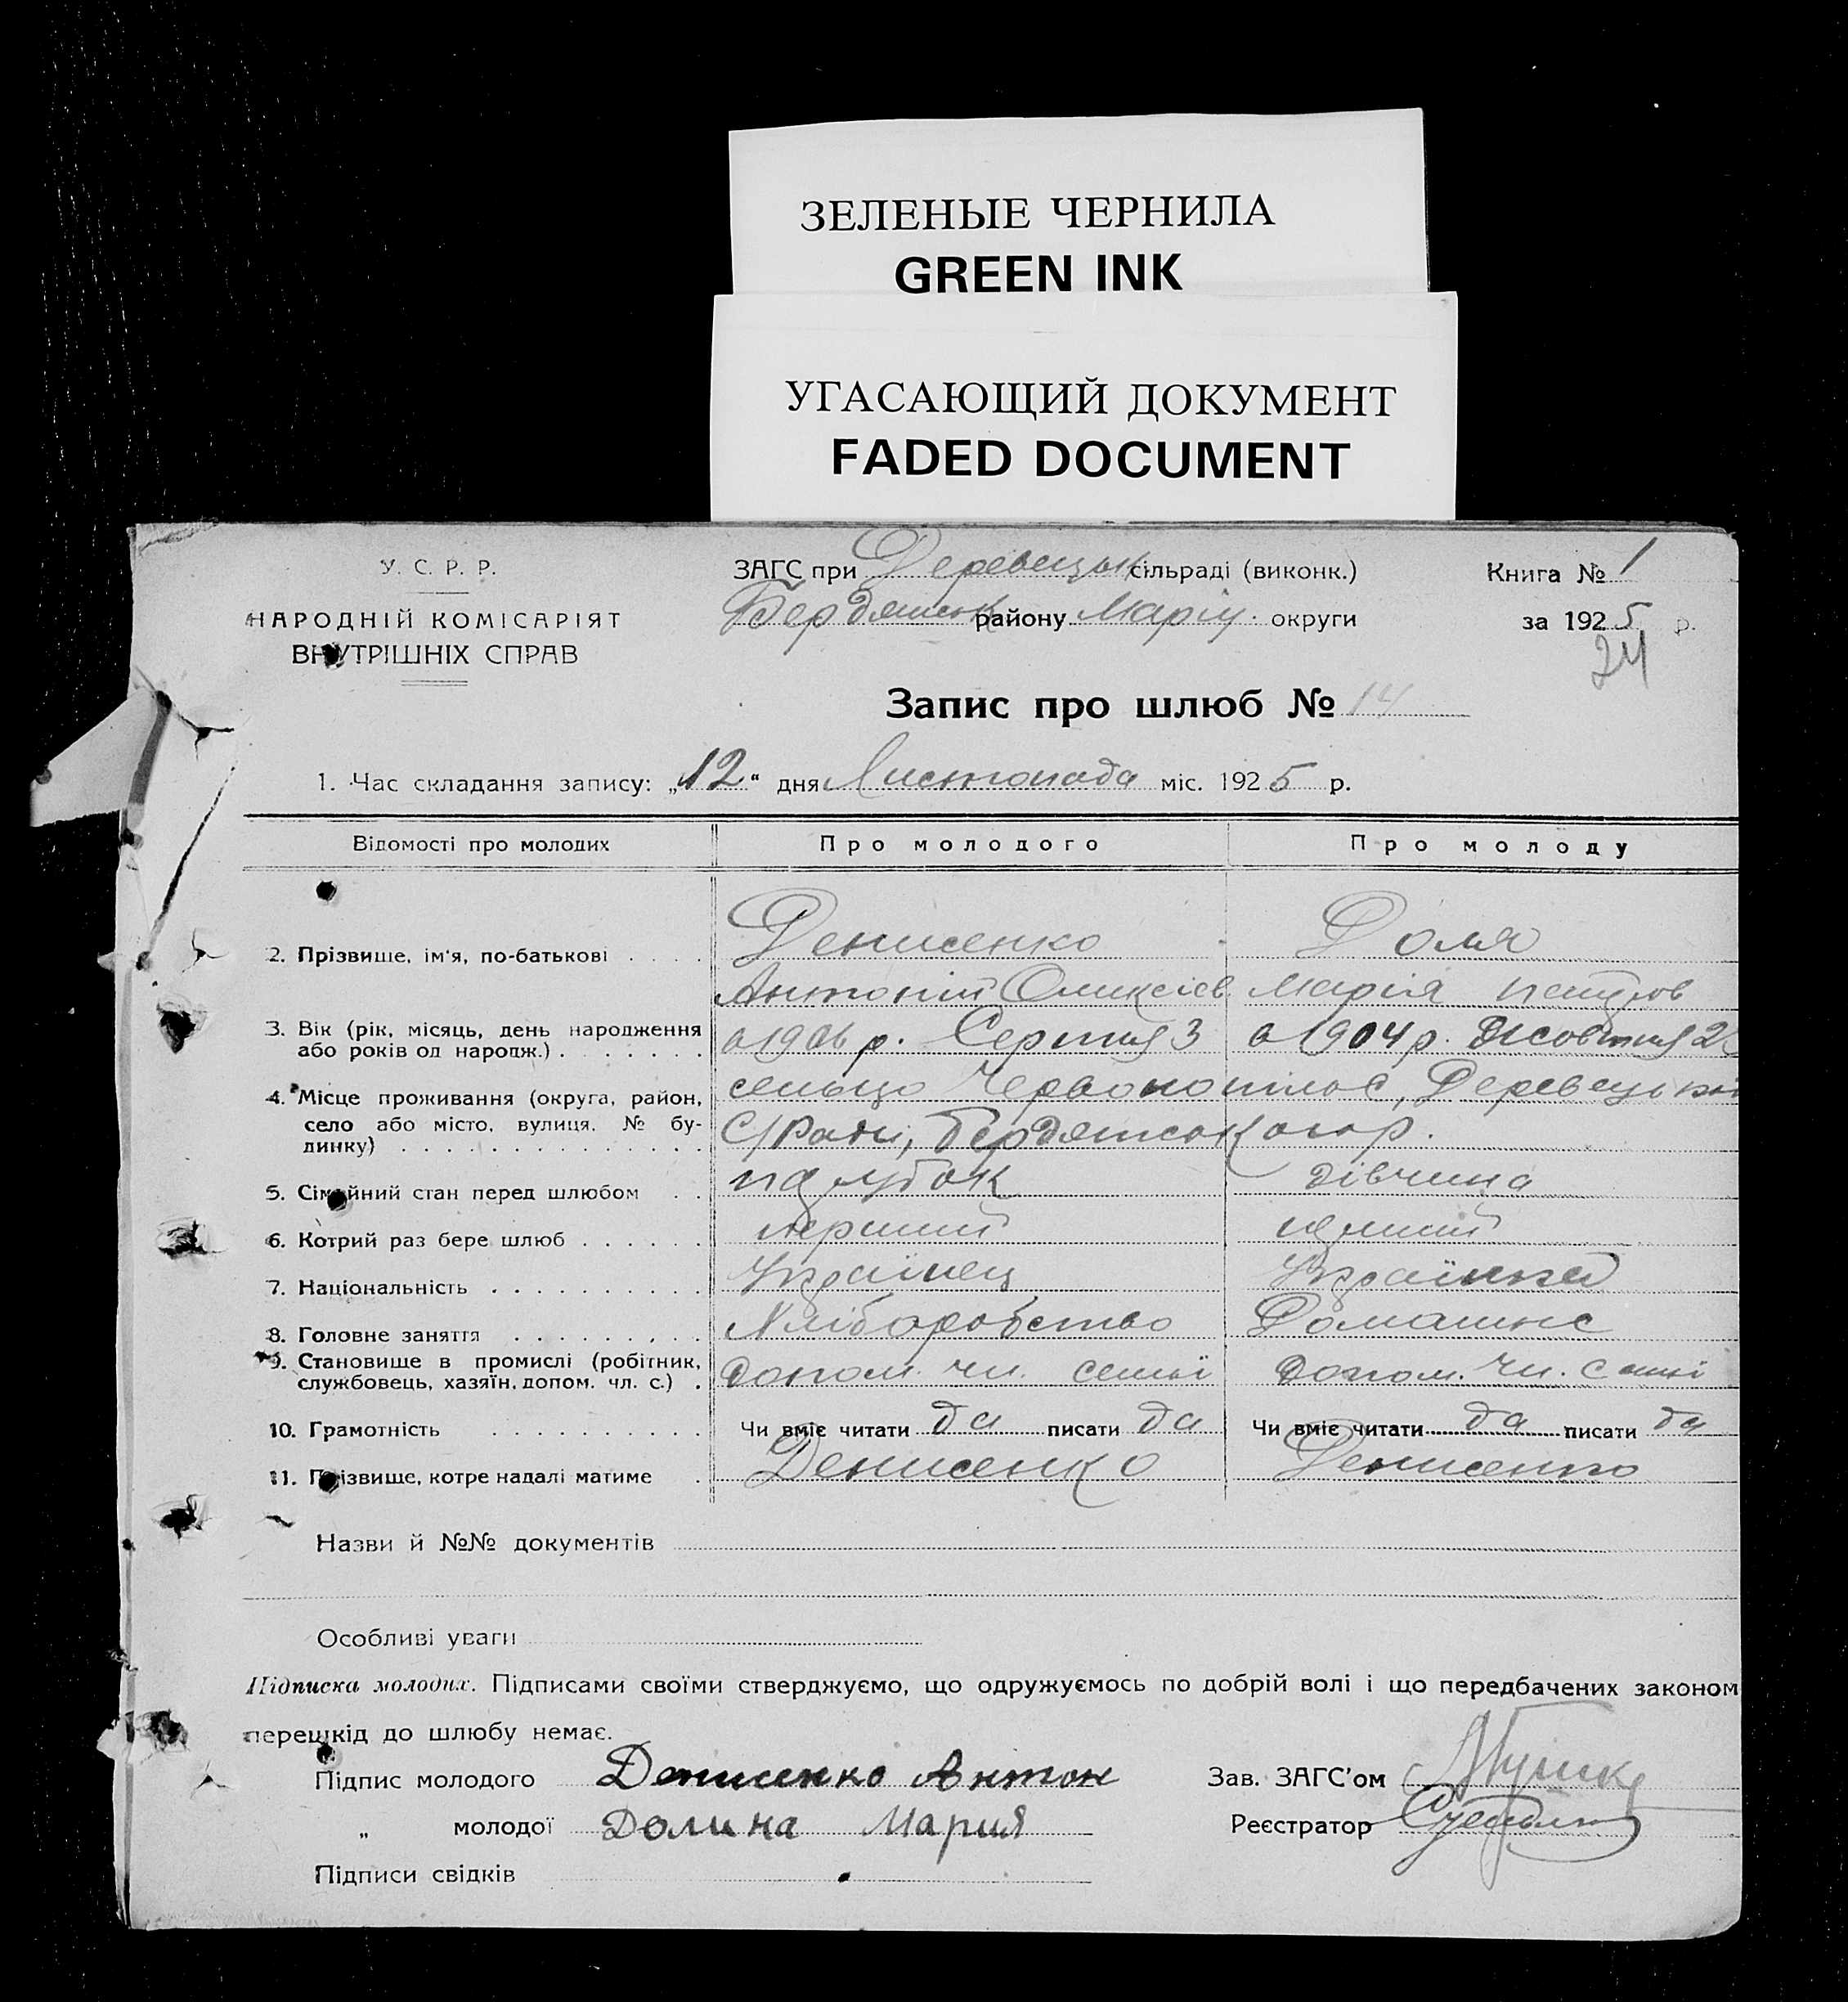 ЗЕЛЕНЫЕ ЧЕРНИЛА
GREEN INK
УГАСАЮЩИЙ ДОКУМЕНТ
FADED DOCUMENT
У. С. Р. Р.
НАРОДНІЙ КОМІСАРІЯТ
ВНУТРІШНІХ СПРАВ
ЗАГС при Деревецьк сільраді (виконк.)
Бердянськ району Маріу. округи
Книга № 1
за 1925 р.
24
Запис про шлюб № 14
1. Час складання запису: „12" дня Листопада міс. 1925 р.
Відомості про молодих Про молодого Про молоду
2. Прізвище, ім'я, по-батькові . . . . Денисенко Доля
Антоній Олексієв Марія
3. Вік (рік, місяць, день народження
або років од народж.) . . . . . . . 1906 р. Серпня 3 1904 р. Жовтня 2
4. Місце проживання (округа, район,
село або місто, вулиця, № бу-
динку) . . . . . . . . . . . . . .
сельцо Червонопілля, Деревецької
С/Ради, Бердянськ
5. Сімейний стан перед шлюбом . . парубок дівчина
6. Котрий раз бере шлюб . . . . . . перший перший
7. Національність . . . . . . . . . . Українец Українка
8. Головне заняття . . . . . . . . . Хліборобство Домашнє
9. Становище в промислі (робітник,
службовець, хазяїн, допом. чл. с.) . допом. чл. семьї допом. чл. семьї
10. Грамотність . . . . . . . . . . Чи вміє читати да писати да Чи вміє читати да писати да
11. Прізвище, котре надалі матиме . Денисенко Денисенко
Назви й №№ документів
Особливі уваги
Підписка молодих. Підписами своїми стверджуємо, що одружуємось по добрій волі і що передбачених законом
перешкід до шлюбу немає.
Підпис молодого Денисенко Антон Зав. ЗАГС'ом
„ молодої Долина Мария Реєстратор
Підписи свідків